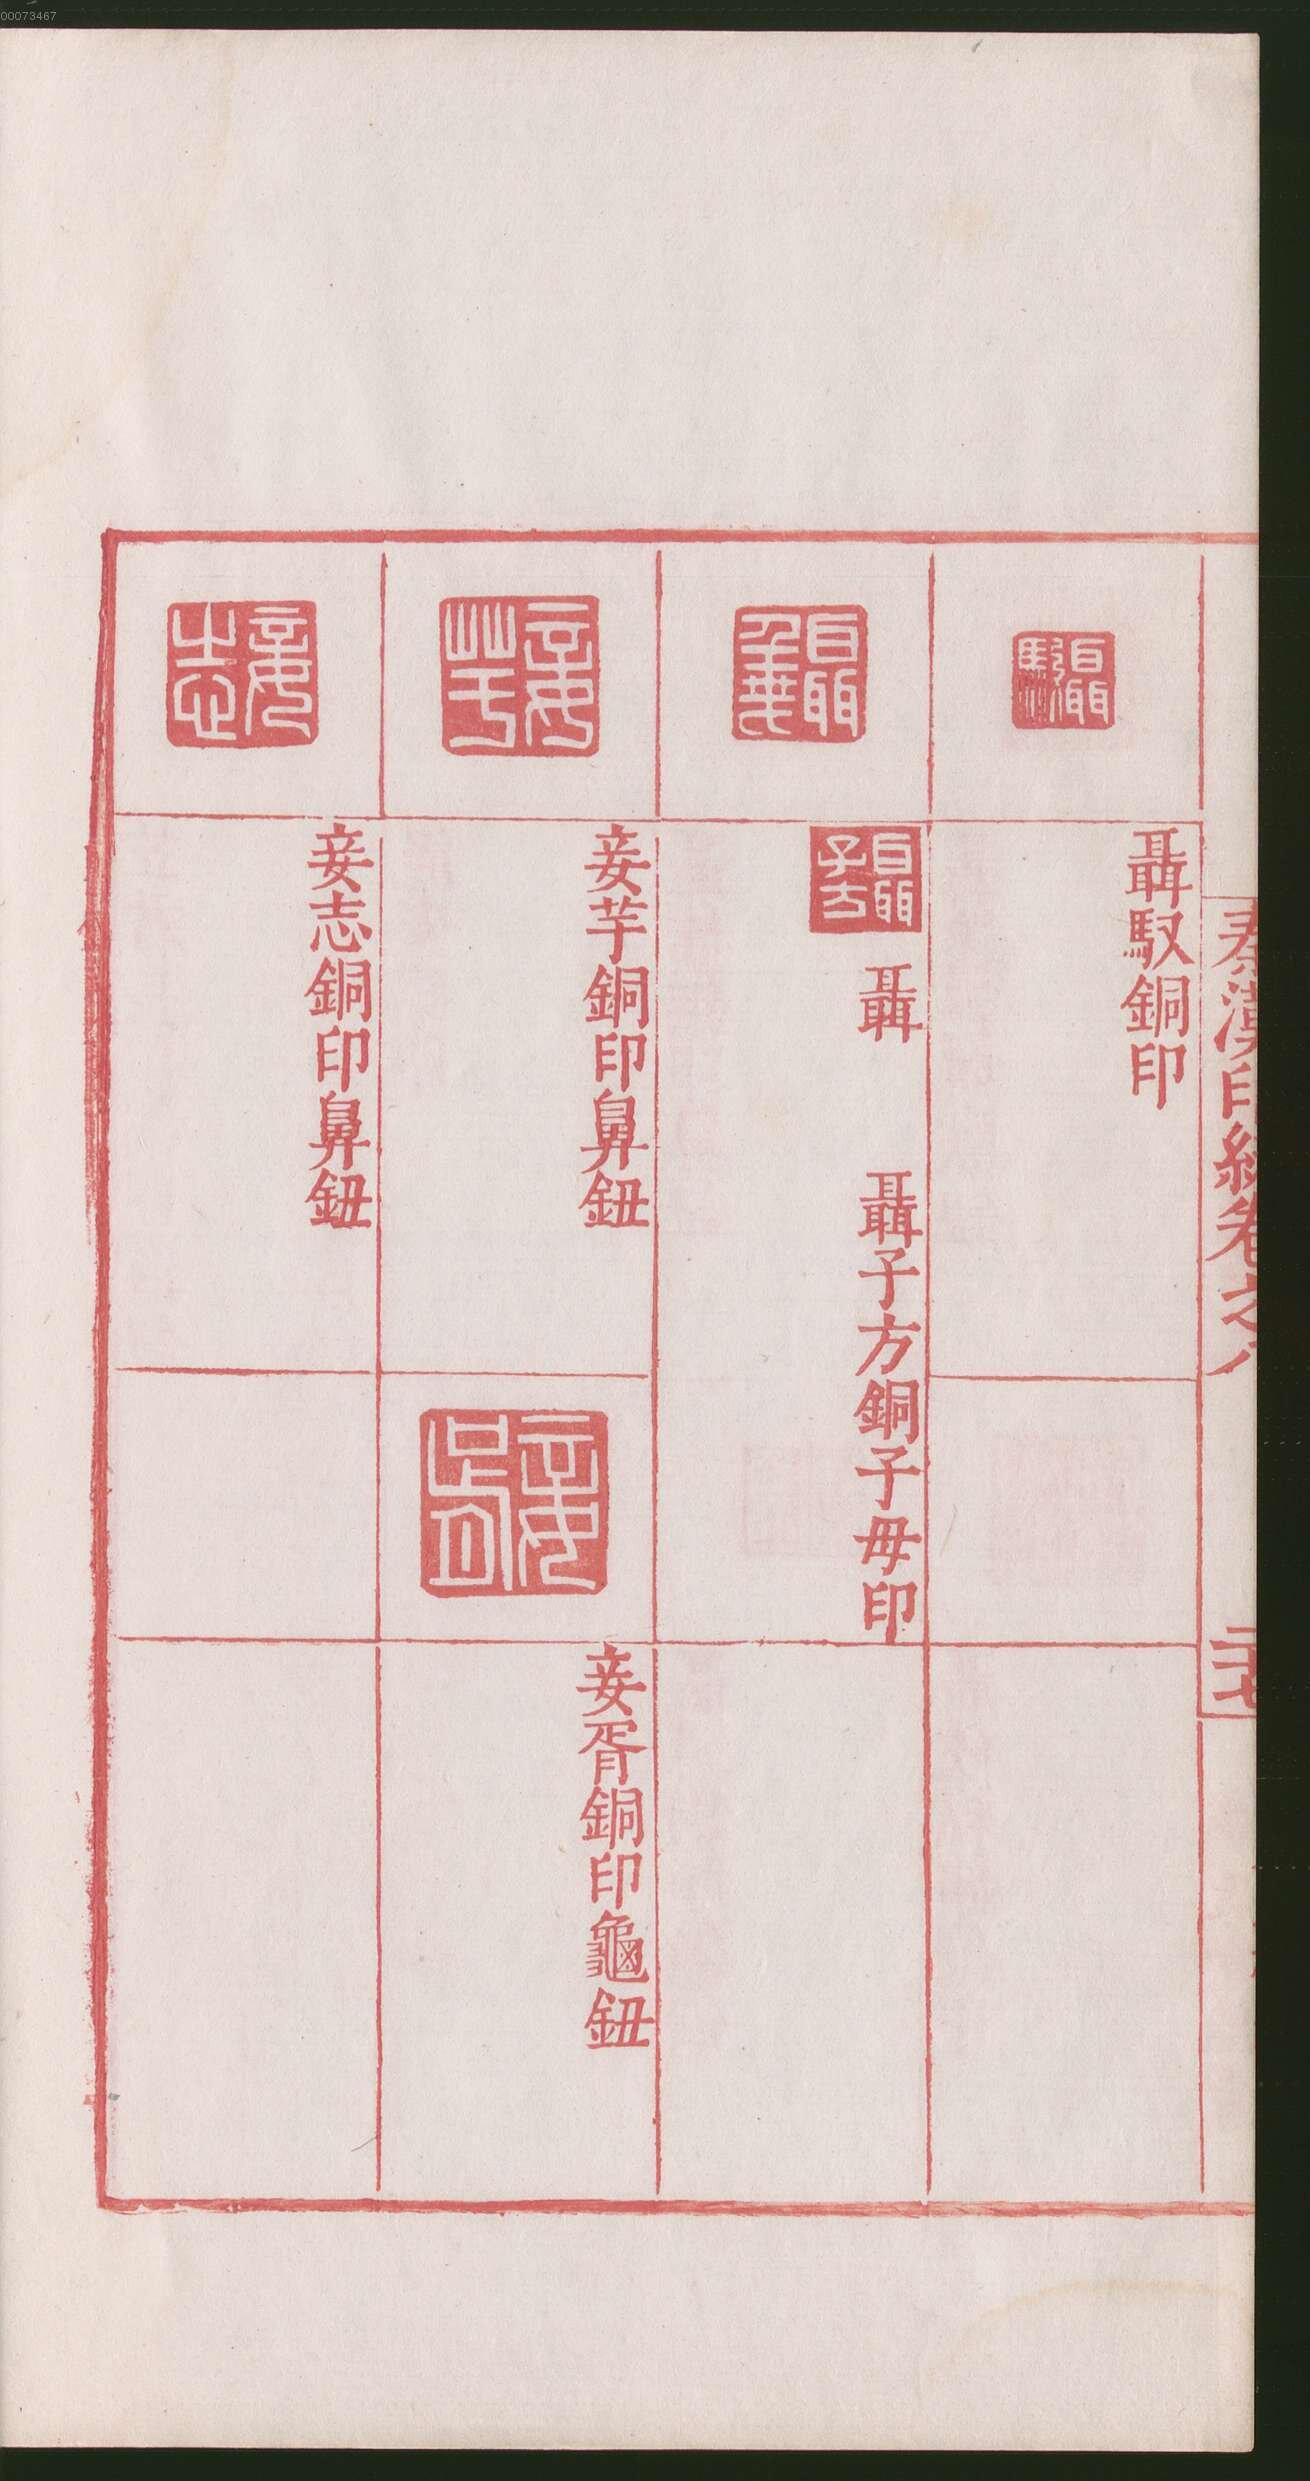 00073467
秦漢印統卷之八
二十七
聶馭銅印
聶
聶子方銅子母印
妾芋銅印鼻鈕
妾胥銅印龜鈕
妾志銅印鼻鈕